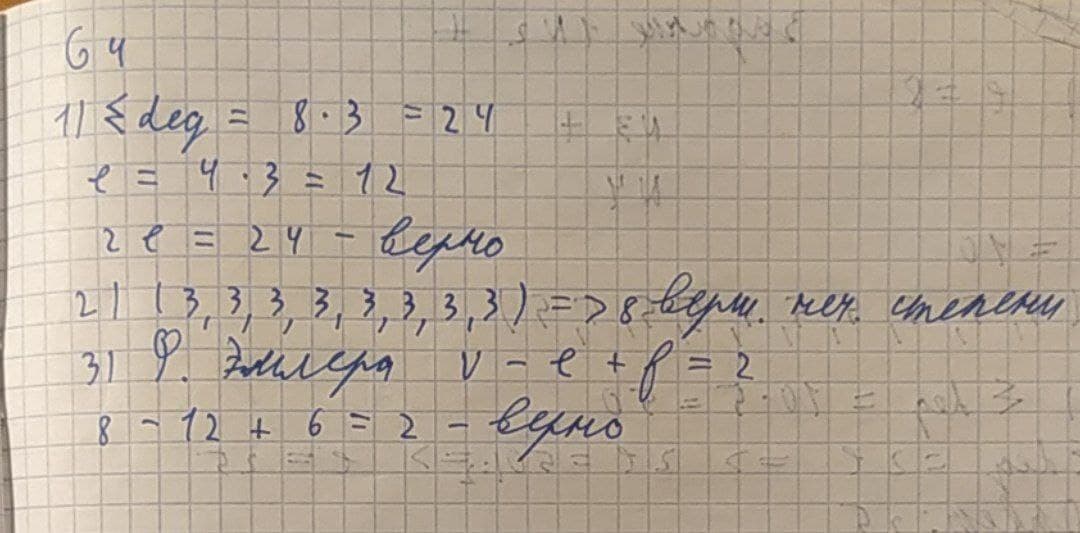 G4
1) Σ deg = 8 · 3 = 24
e = 4 · 3 = 12
2 e = 24 - верно
2) (3, 3, 3, 3, 3, 3, 3, 3) => 8 верш. неч. степени
3) Ф. Эйлера v - e + f = 2
8 - 12 + 6 = 2 - верно